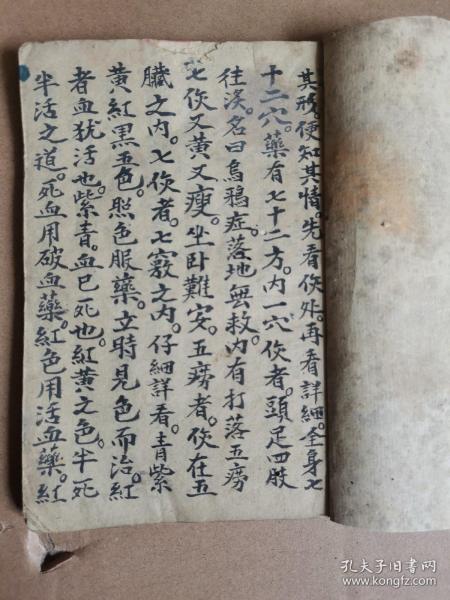 其形。便知其情。先看伤外。再看詳細。全身七
十二穴。藥有七十二方。内一穴伤者。頭足四肢
往溪。名曰烏鴉症。落地無救。内有打落五痨
七伤。又黃又瘦。坐卧難安。五痨者。伤在五
臟之内。七伤者。七竅之内。仔細詳看。青紫
黃紅黑五色。照色服藥。立時見色而治。紅
者血犹活也。紫青。血已死也。紅黃之色。半死
半活之道。死血用破血藥。紅色用活血藥。紅
孔夫子旧书网
www.kongfz.com